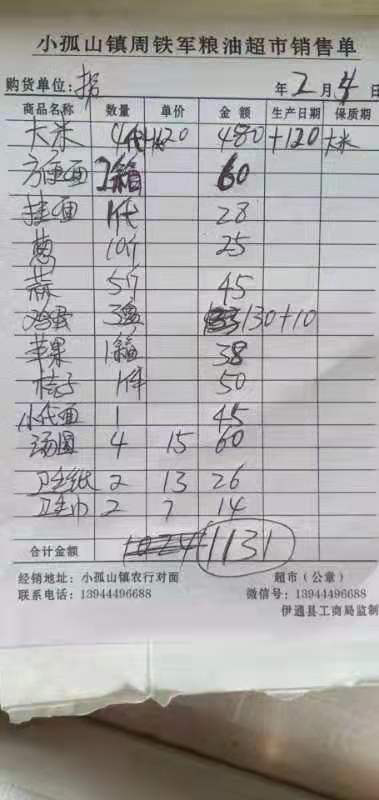 小孤山镇周铁军粮油超市销售单
购货单位: 年2月4日
商品名称 数量 单价 金额 生产日期 保质期
大米 4代 120 480 +120 大米
方便面 2箱 60
挂面 1代 28
葱 10斤 25
蒜 5斤 45
鸡蛋 3 130+10
苹果 1箱 38
桔子 1件 50
小代面 1 45
汤圆 4 15 60
卫生纸 2 13 26
卫生巾 2 7 14
合计金额 1024 1131
经销地址:小孤山镇农行对面 超市(公章)
联系电话:13944496688 微信号:13944496688
伊通县工商局监制